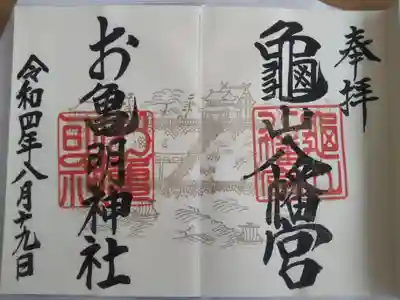 奉拝
龜山八幡宮
お亀明神社
令和四年八月十九日